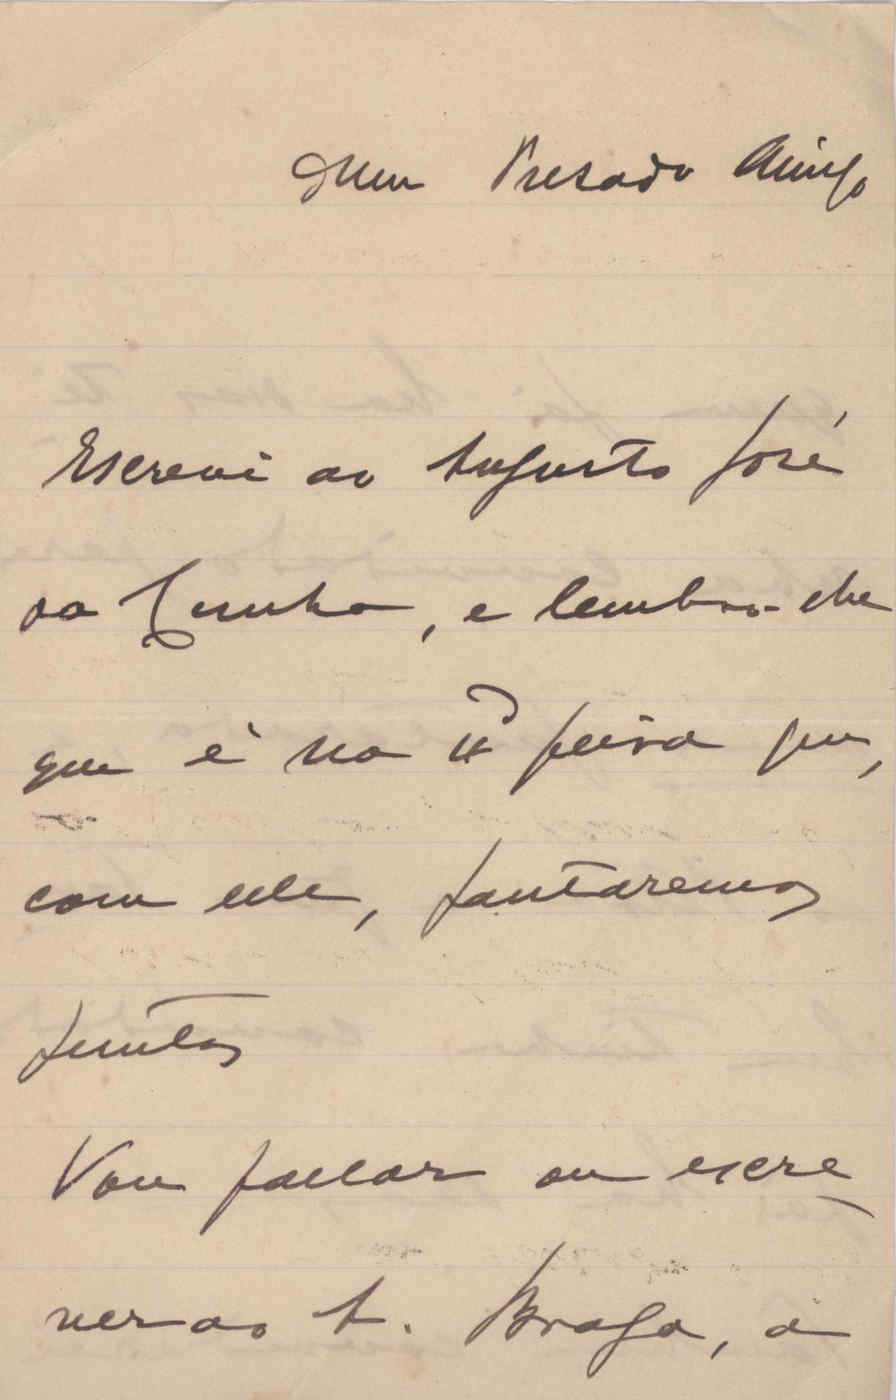 Meu Presado Amigo
Escrevi ao Augusto José
da Cunha, e lembro-lhe
que é na 4ª feira que,
com elle, jantaremos
juntos
Vou fallar ou escre
ver ao A. Braga, a